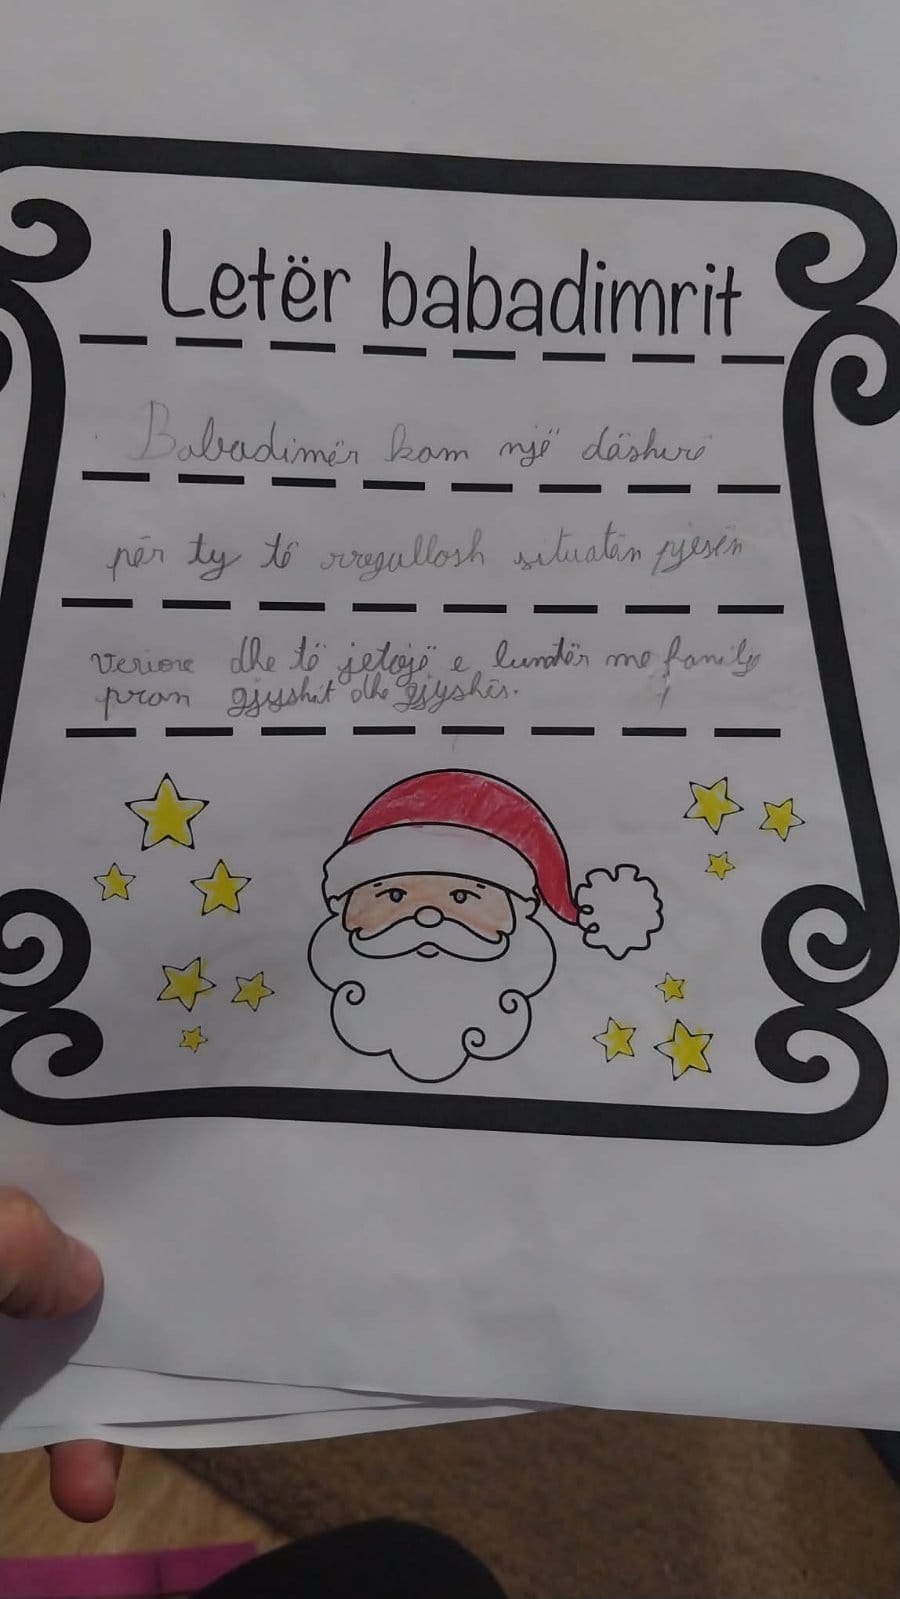 Letër babadimrit
Babadimër kam një dëshirë
për ty të rregullosh situatën pjesën
veriore dhe të jetojë e lumtër me familje
pran gjyshit dhe gjyshës.